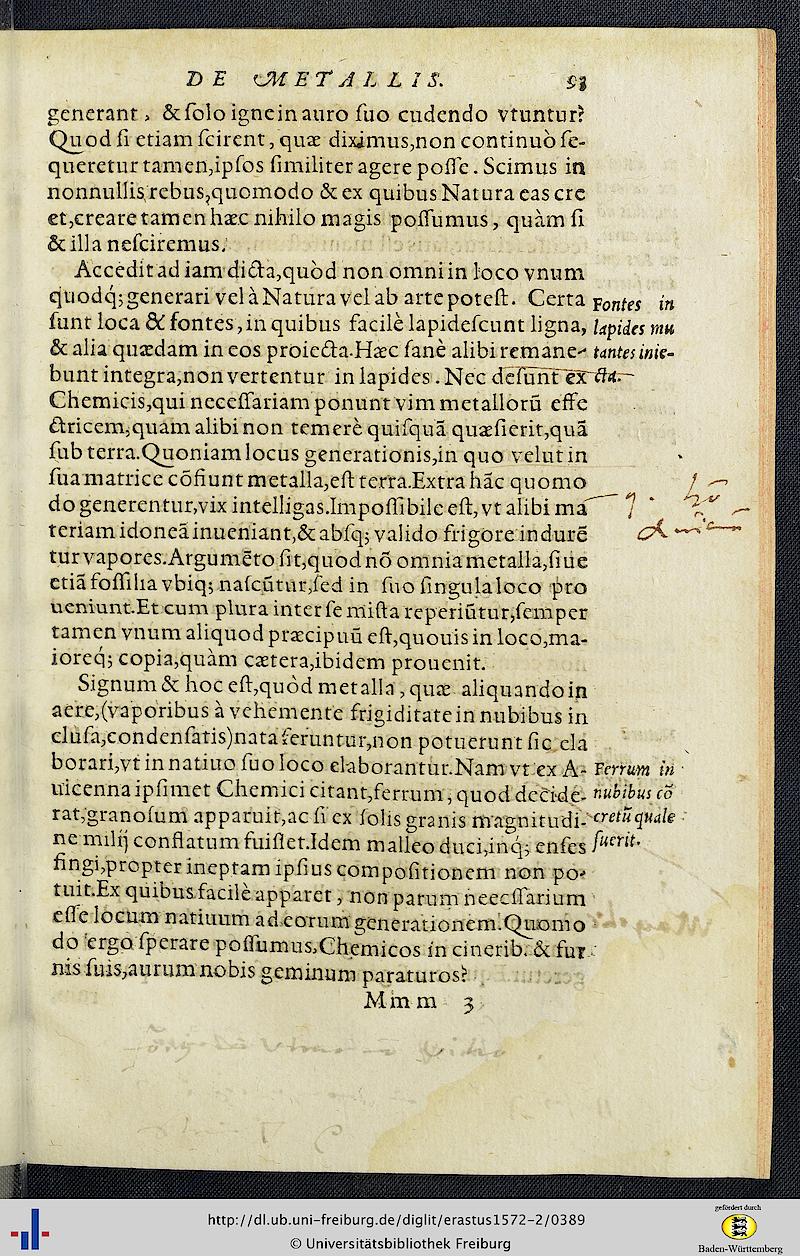 DE METALLIS. 93
generant, & ſolo igne in auro ſuo cudendo vtuntur?
Quod ſi etiam ſcirent, quæ diximus, non continuò ſe-
queretur tamen, ipſos ſimiliter agere poſſe. Scimus in
nonnullis rebus, quomodo & ex quibus Natura eas cre
et, creare tamen hæc nihilo magis poſſumus, quàm ſi
& illa neſciremus.
Accedit ad iam dicta, quòd non omni in loco vnum
quodq́; generari vel à Natura vel ab arte poteſt. Certa
ſunt loca & fontes, in quibus facilè lapideſcunt ligna,
& alia quædam in eos proiecta. Hæc ſanè alibi remane-
bunt integra, non vertentur in lapides. Nec deſunt ex
Chemicis, qui neceſſariam ponunt vim metallorū effe
ctricem, quam alibi non temerè quiſquā quæſierit, quā
ſub terra. Quoniam locus generationis, in quo velut in
ſua matrice cōfiunt metalla, eſt terra. Extra hāc quomo
do generentur, vix intelligas. Impoſſibile eſt, vt alibi ma
teriam idoneā inueniant, & abſq; valido frigore indurē
tur vapores. Argumēto ſit, quod nō omnia metalla, ſiue
etiā foſſilia vbiq; naſcūtur, ſed in ſuo ſingula loco pro
ueniunt. Et cum plura inter ſe miſta reperiūtur, ſemper
tamen vnum aliquod præcipuū eſt, quouis in loco, ma-
ioreq́; copia, quàm cætera, ibidem prouenit.
Signum & hoc eſt, quòd metalla, quæ aliquando in
aere, (vaporibus à vehemente frigiditate in nubibus in
cluſa, condenſatis) nata feruntur, non potuerunt ſic ela
borari, vt in natiuo ſuo loco elaborantur. Nam vt ex A-
uicenna ipſimet Chemici citant, ferrum, quod decide-
rat, granoſum apparuit, ac ſi ex ſolis granis magnitudi-
ne milij conflatum fuiſſet. Idem malleo duci, inq́; enſes
fingi, propter ineptam ipſius compoſitionem non po-
tuit. Ex quibus facilè apparet, non parum neceſſarium
eſſe locum natiuum ad eorum generationem. Quomo
do ergo ſperare poſſumus, Chemicos in cinerib. & fur
nis ſuis, aurum nobis geminum paraturos?
Mmm 3
Fontes in
lapides mu
tantes inie-
cta.
Ferrum in
nubibus cō
cretū quale
fuerit.
http://dl.ub.uni-freiburg.de/diglit/erastus1572-2/0389
© Universitätsbibliothek Freiburg
gefördert durch
Baden-Württemberg